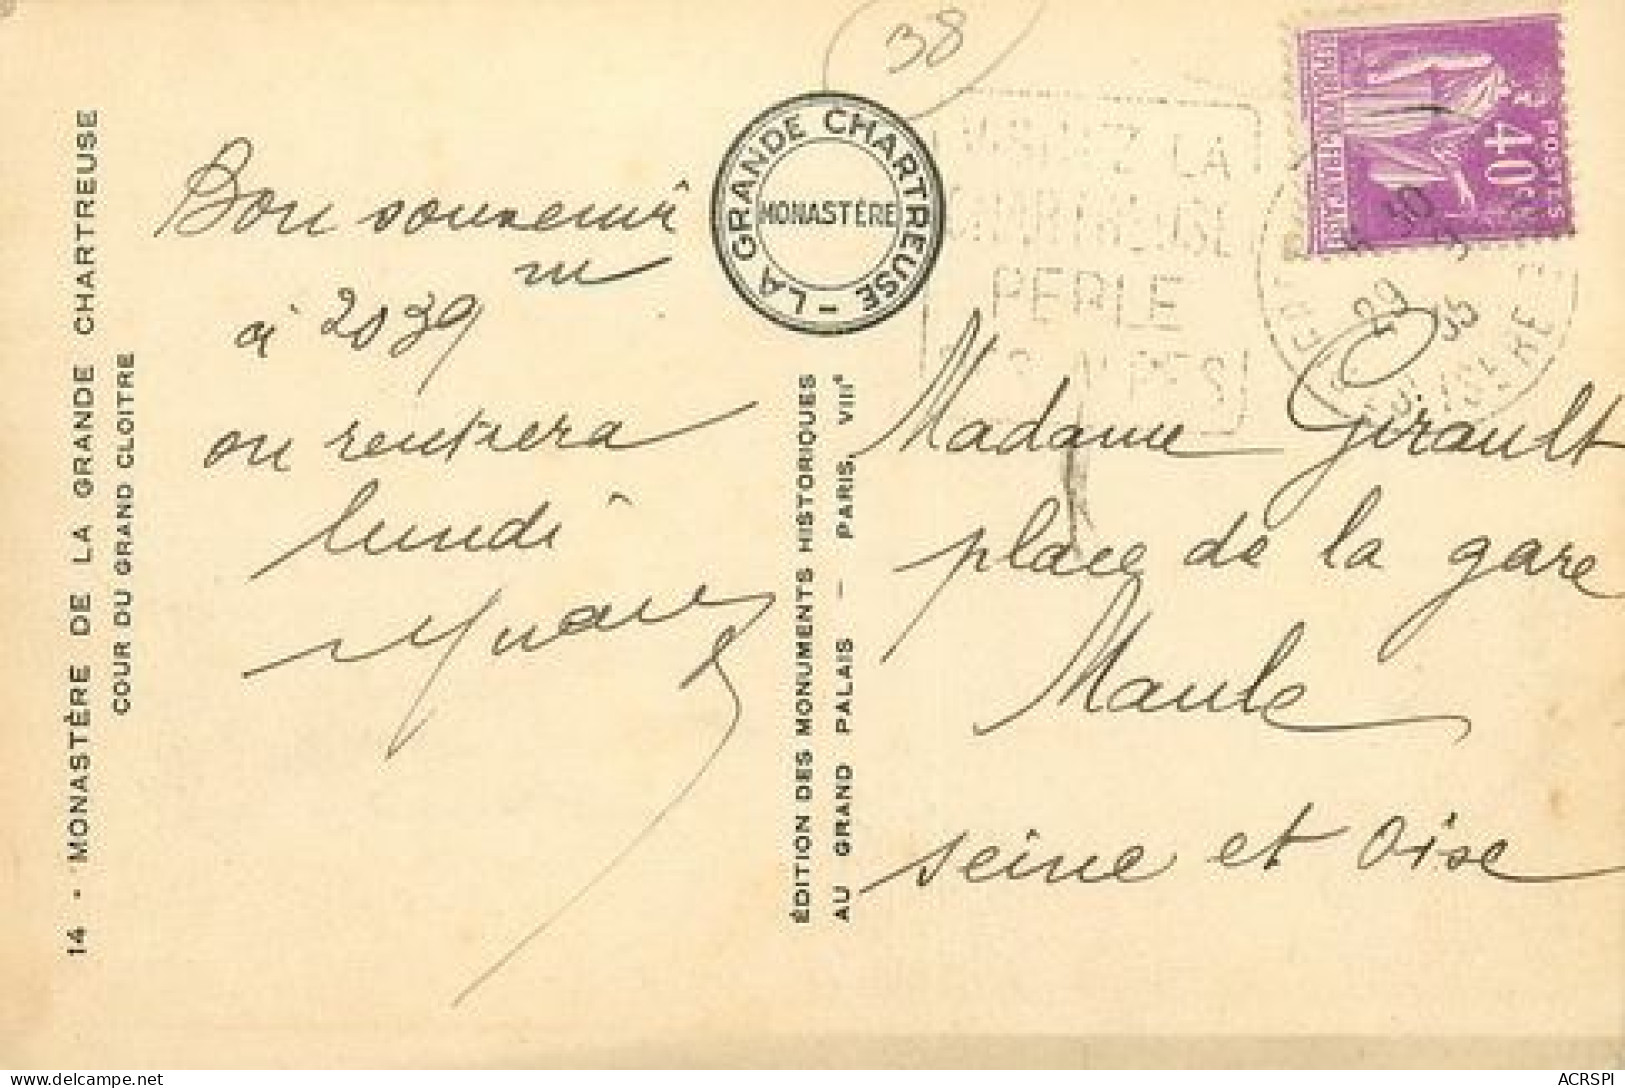 14 - MONASTÈRE DE LA GRANDE CHARTREUSE
COUR DU GRAND CLOITRE
Bon souvenir
à 2039 m
on rentrera
lundi
38
LA GRANDE CHARTREUSE -
MONASTÈRE
ÉDITION DES MONUMENTS HISTORIQUES
AU GRAND PALAIS — PARIS, VIIIe
VISITEZ LA
CHARTREUSE
PERLE
DES ALPES
POSTES
40c
RÉPUBLIQUE FRANÇAISE
29
35
ISERE
Madame Girault
place de la gare
Maule
seine et Oise
delcampe.net
ACRSPI